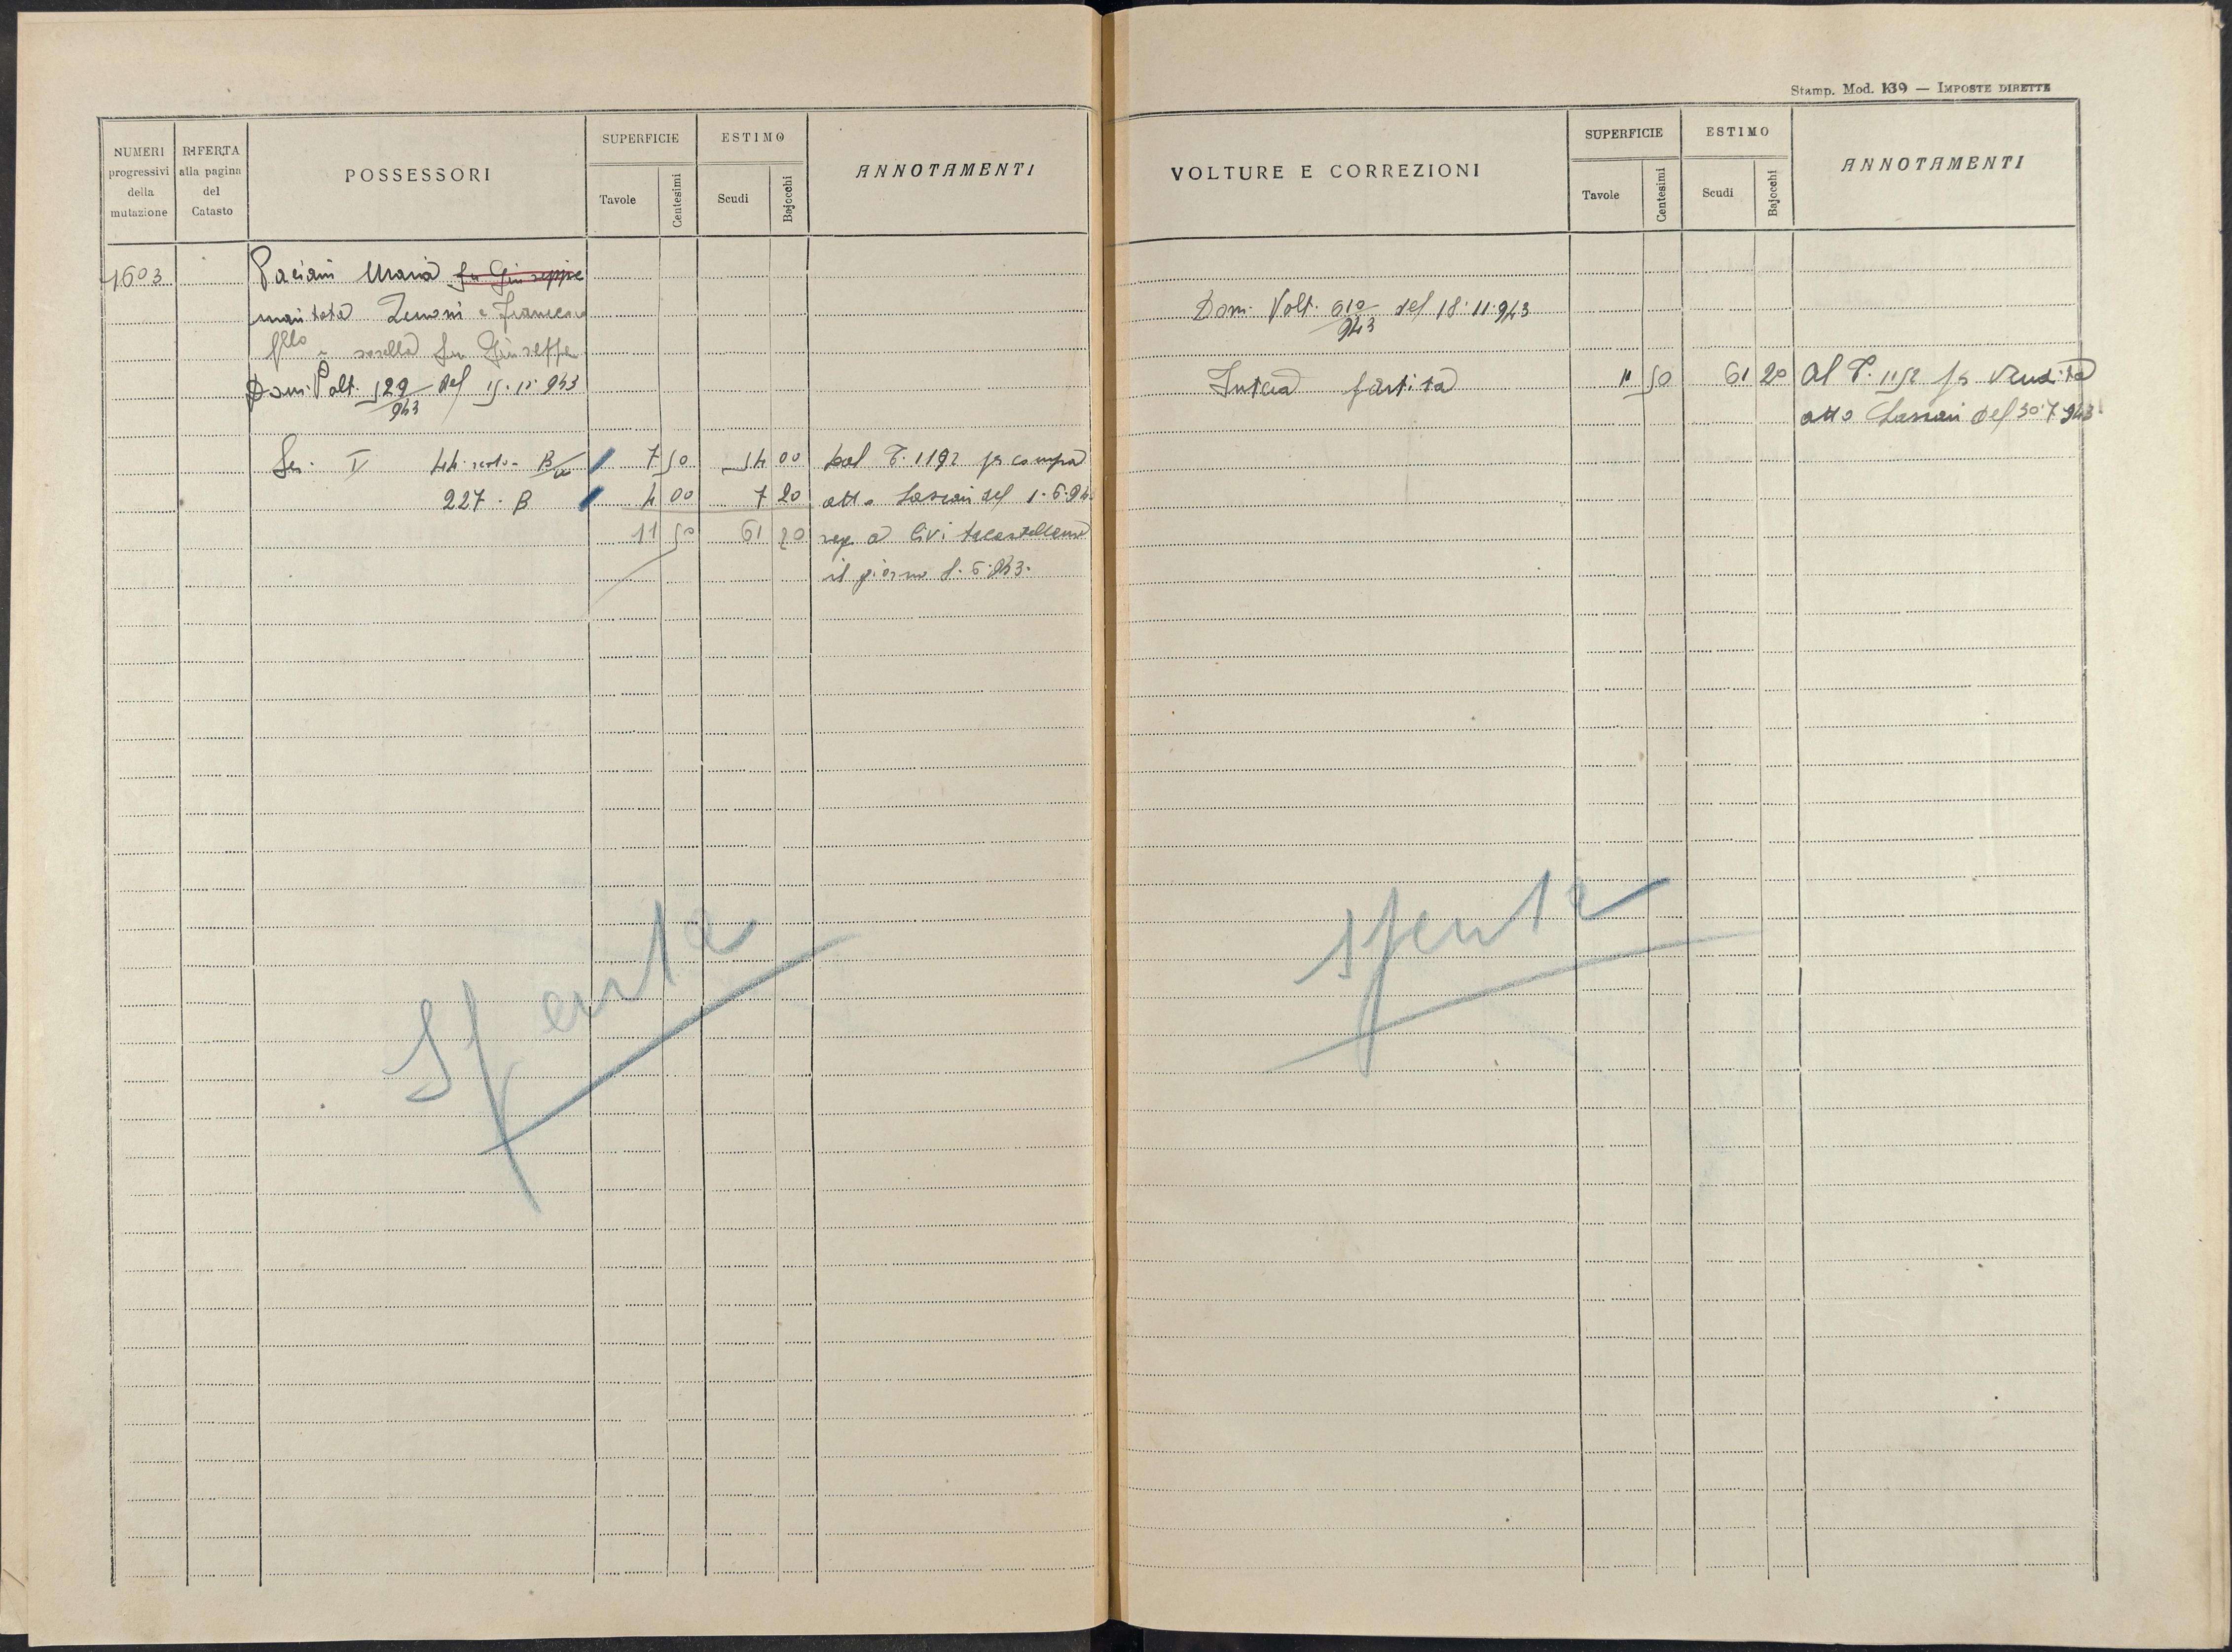 Stamp. Mod. 139 — IMPOSTE DIRETTE
NUMERI progressivi della mutazione
RIFERTA alla pagina del Catasto
POSSESSORI
SUPERFICIE
Tavole
Centesimi
ESTIMO
Scudi
Bajocchi
ANNOTAMENTI
VOLTURE E CORREZIONI
SUPERFICIE
Tavole
Centesimi
ESTIMO
Scudi
Bajocchi
ANNOTAMENTI
1603 Paciani Maria fu Giuseppe
maritata Zenoni e Francesco
flllo e sorella fu Giuseppe
Dom. Volt. 529/943 del
Sez. V 44 B 7 50 54 00 Dal P. 1192 per compra
227 B 4 00 7 20 atto del 1.6.943
11 50 61 20 reg a Civitacastellana
il giorno
Dom. Volt. 610/943 del 18.11.943
Intera partita 11 50 61 20 Al P. 1152 per vendita
atto del 30.7.943
Spenta
Spenta